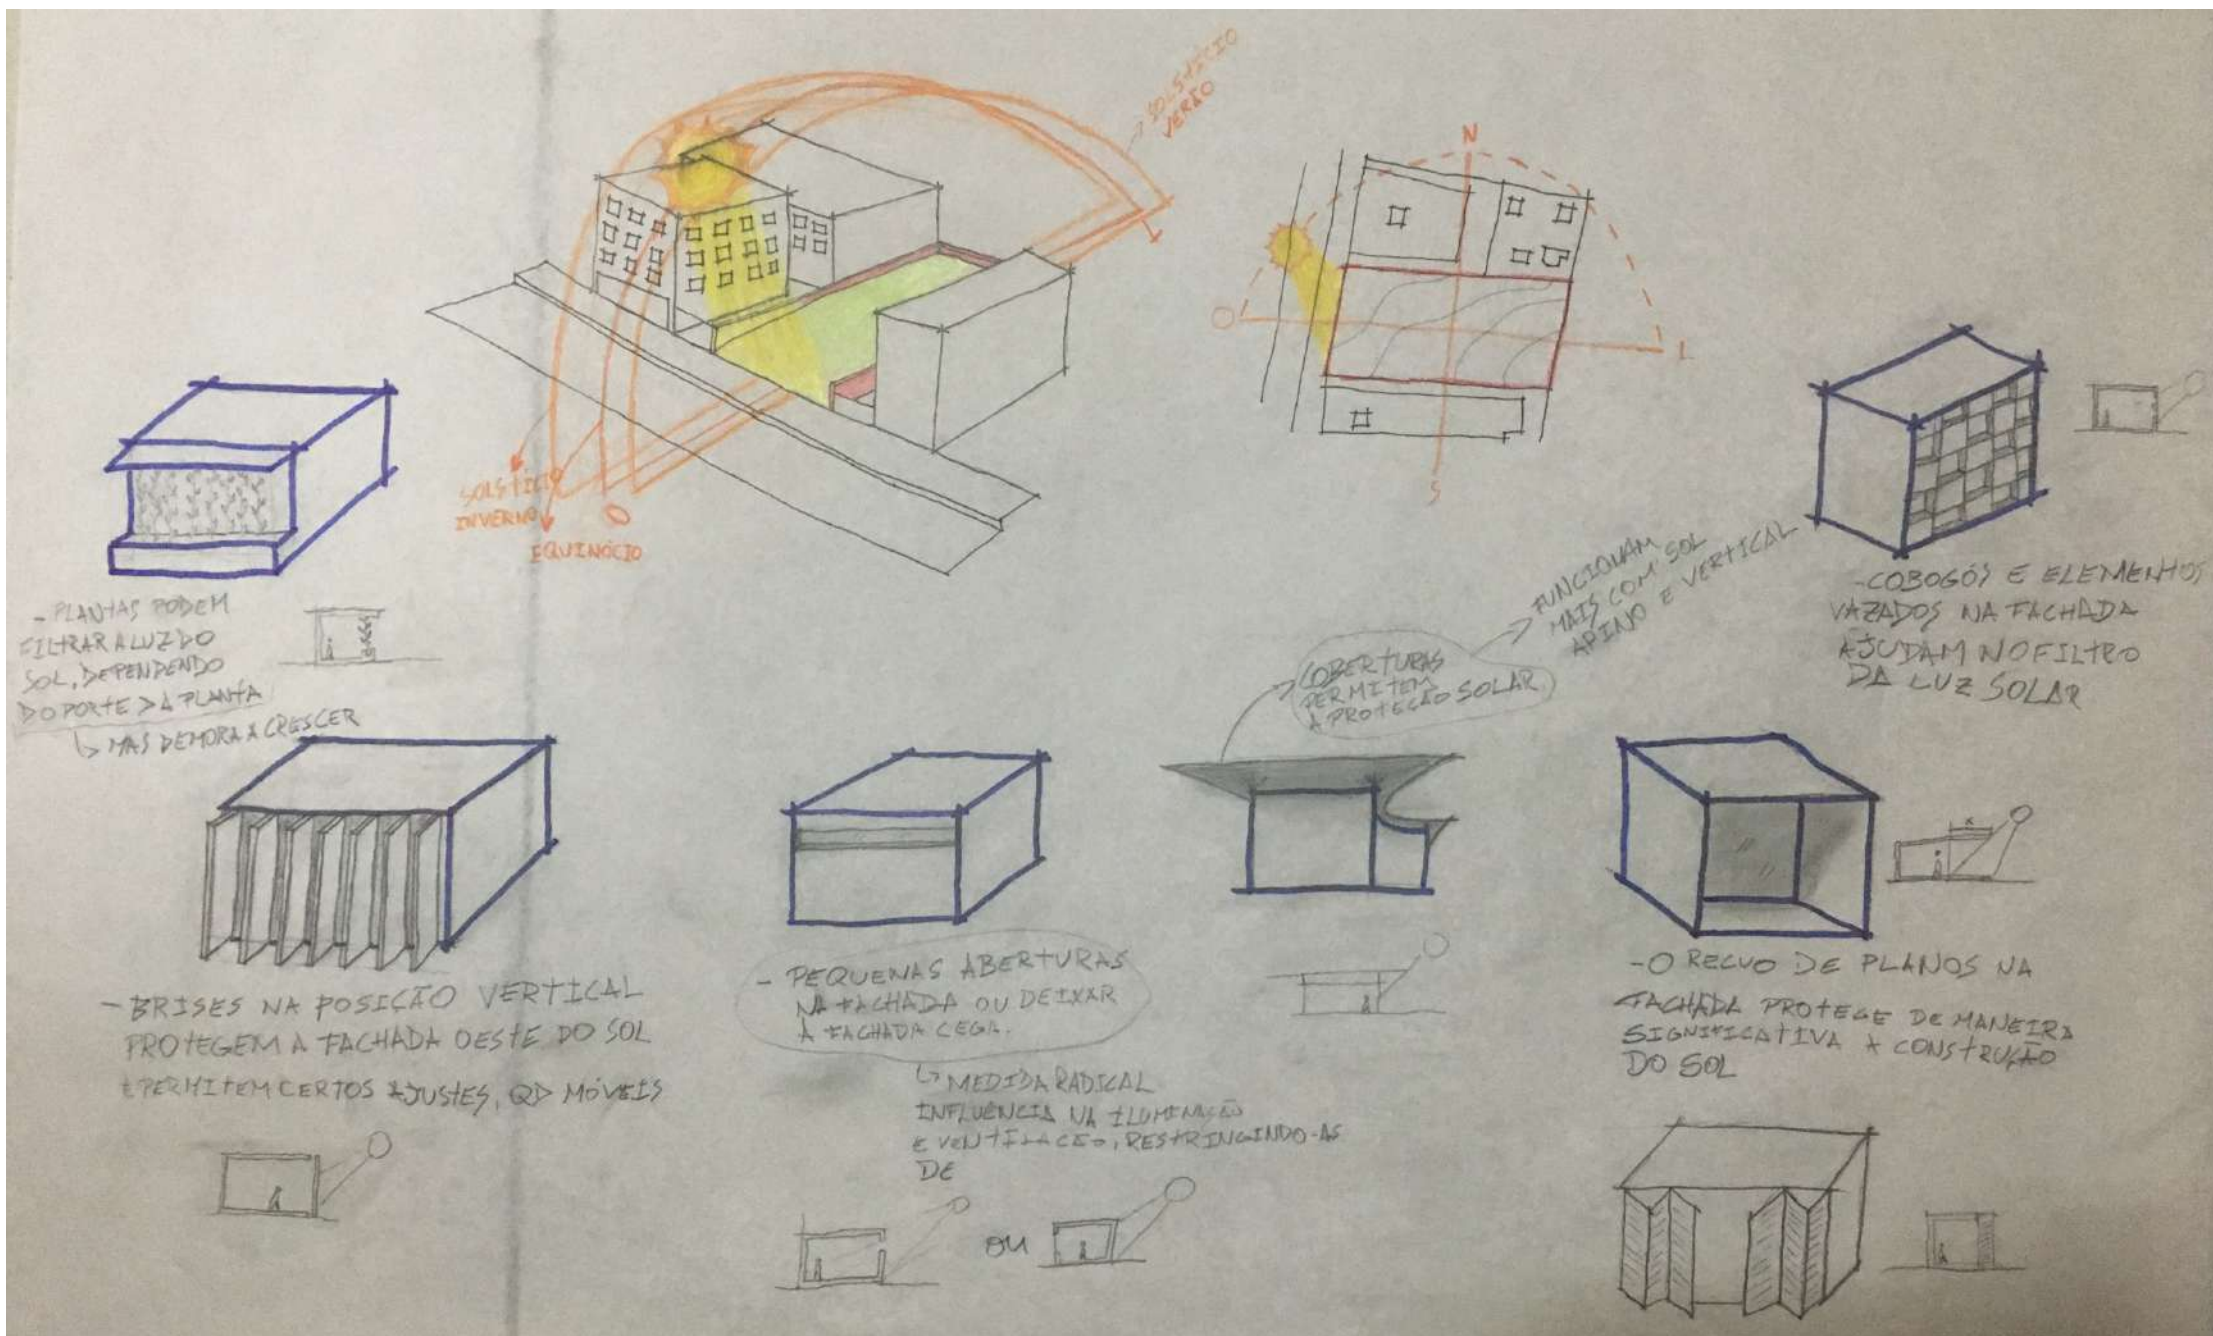 SOLSTÍCIO
VERÃO
L
SOLSTÍCIO
INVERNO
O
EQUINÓCIO
N
O
L
S
- PLANTAS PODEM
FILTRAR A LUZ DO
SOL, DEPENDENDO
DO PORTE DA PLANTA
↳ MAS DEMORA A CRESCER
COBERTURAS
PERMITEM
A PROTEÇÃO SOLAR
FUNCIONAM
MAIS COM SOL
APINO E VERTICAL
- COBOGÓS E ELEMENTOS
VAZADOS NA FACHADA
AJUDAM NO FILTRO
DA LUZ SOLAR
- BRISES NA POSIÇÃO VERTICAL
PROTEGEM A FACHADA OESTE DO SOL
E PERMITEM CERTOS AJUSTES, QD MÓVEIS
- PEQUENAS ABERTURAS
NA FACHADA OU DEIXAR
A FACHADA CEGA.
↳ MEDIDA RADICAL
INFLUÊNCIA NA ILUMINAÇÃO
E VENTILAÇÃO, RESTRINGINDO-AS
DE
OU
- O RECUO DE PLANOS NA
FACHADA PROTEGE DE MANEIRA
SIGNIFICATIVA A CONSTRUÇÃO
DO SOL
x